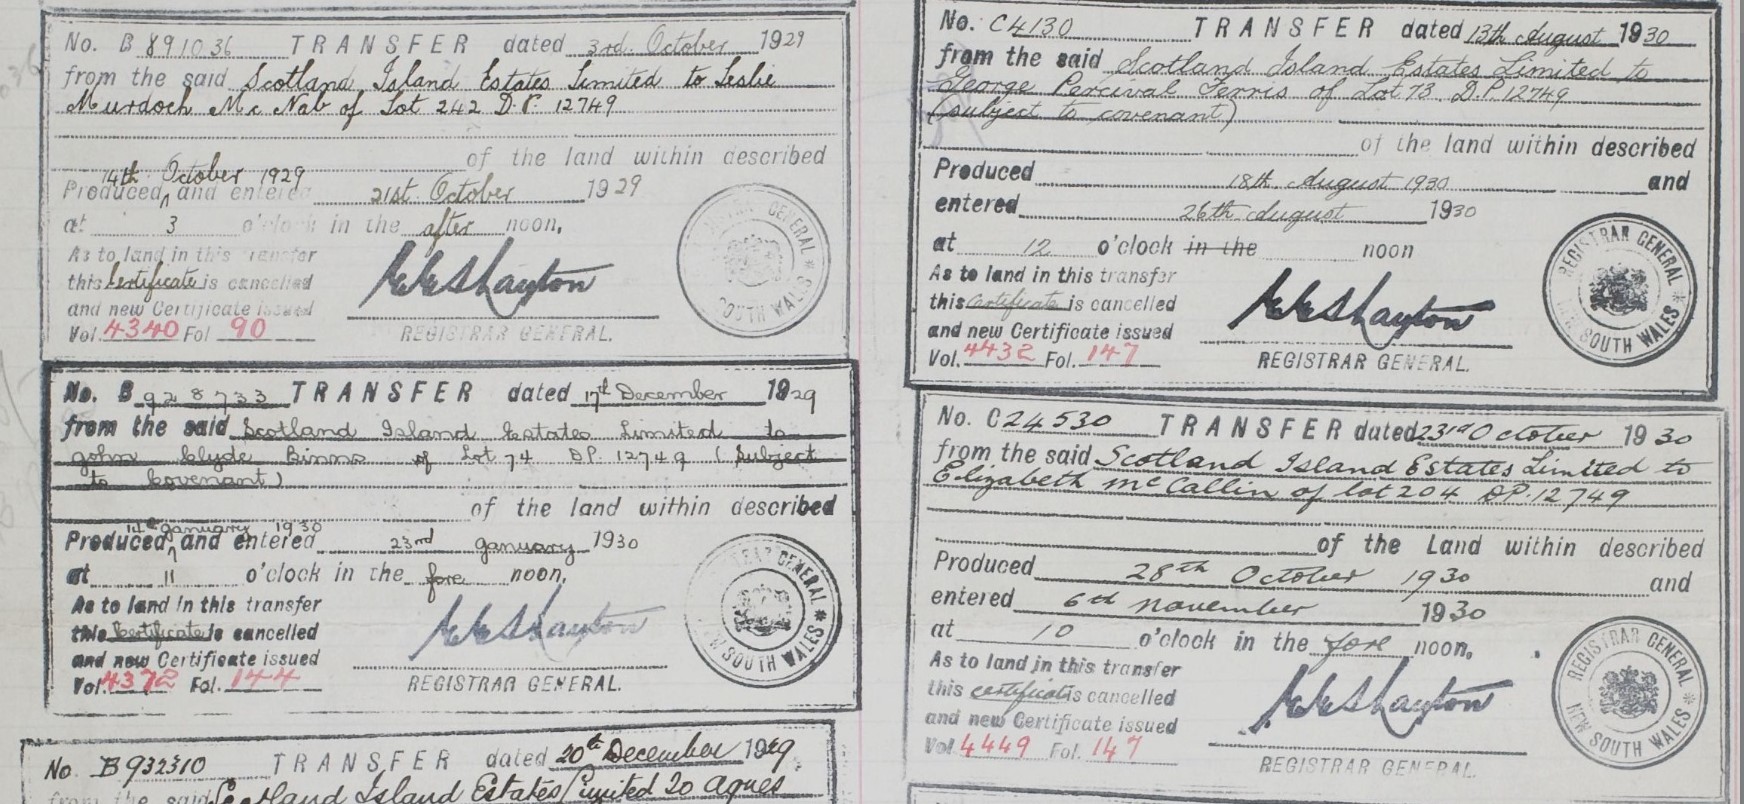 No. B 891036 TRANSFER dated 3rd October 1929
from the said Scotland Island Estates Limited to Leslie
Murdoch McNab of Lot 242 D.P. 12749
of the land within described
14th October 1929
Produced ^ and entered 21st October 1929
at 3 o'clock in the after noon,
As to land in this transfer
this Certificate is cancelled
and new Certificate issued
Vol. 4340 Fol. 90
REGISTRAR GENERAL.
REGISTRAR GENERAL * NEW SOUTH WALES *
No. B 928733 TRANSFER dated 17th December 1929
from the said Scotland Island Estates Limited to
John Clyde Binns of Lot 74 DP. 12749 (Subject
to Covenant)
of the land within described
14th January 1930
Produced ^ and entered 23rd January 1930
at 11 o'clock in the fore noon,
As to land in this transfer
this Certificate is cancelled
and new Certificate issued
Vol. 4372 Fol. 144
REGISTRAR GENERAL.
REGISTRAR GENERAL * NEW SOUTH WALES *
No. B 932310 TRANSFER dated 20th December 1929
from the said Scotland Island Estates Limited to Agnes
No. C4130 TRANSFER dated 13th August 1930
from the said Scotland Island Estates Limited to
George Percival Ferris of Lot 73 D.P. 12749
(subject to covenant)
of the land within described
Produced 18th August 1930 and
entered 26th August 1930
at 12 o'clock in the noon
As to land in this transfer
this certificate is cancelled
and new Certificate issued
Vol. 4432 Fol. 147
REGISTRAR GENERAL.
REGISTRAR GENERAL * NEW SOUTH WALES *
No. C24530 TRANSFER dated 23rd October 1930
from the said Scotland Island Estates Limited to
Elizabeth McCallin of lot 204 DP. 12749
of the Land within described
Produced 28th October 1930 and
entered 6th November 1930
at 10 o'clock in the fore noon,
As to land in this transfer
this certificate is cancelled
and new Certificate issued
Vol. 4449 Fol. 147
REGISTRAR GENERAL.
REGISTRAR GENERAL * NEW SOUTH WALES *